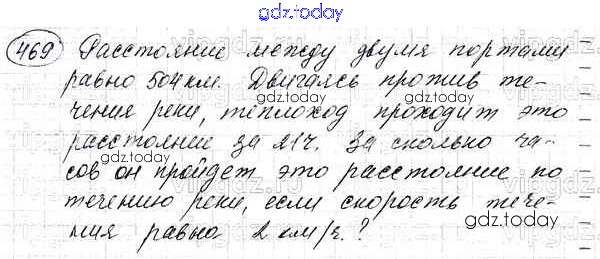 gdz.today
469 Расстояние между двумя портами
равно 504 км. Двигаясь против те-
gdz.today
чения реки, теплоход проходит это
gdz.today
расстояние за 21ч. За сколько ча-
gdz.today
сов он пройдет это расстояние по
течению реки, если скорость тече-
gdz.today
ния равна 2 км/ч.?